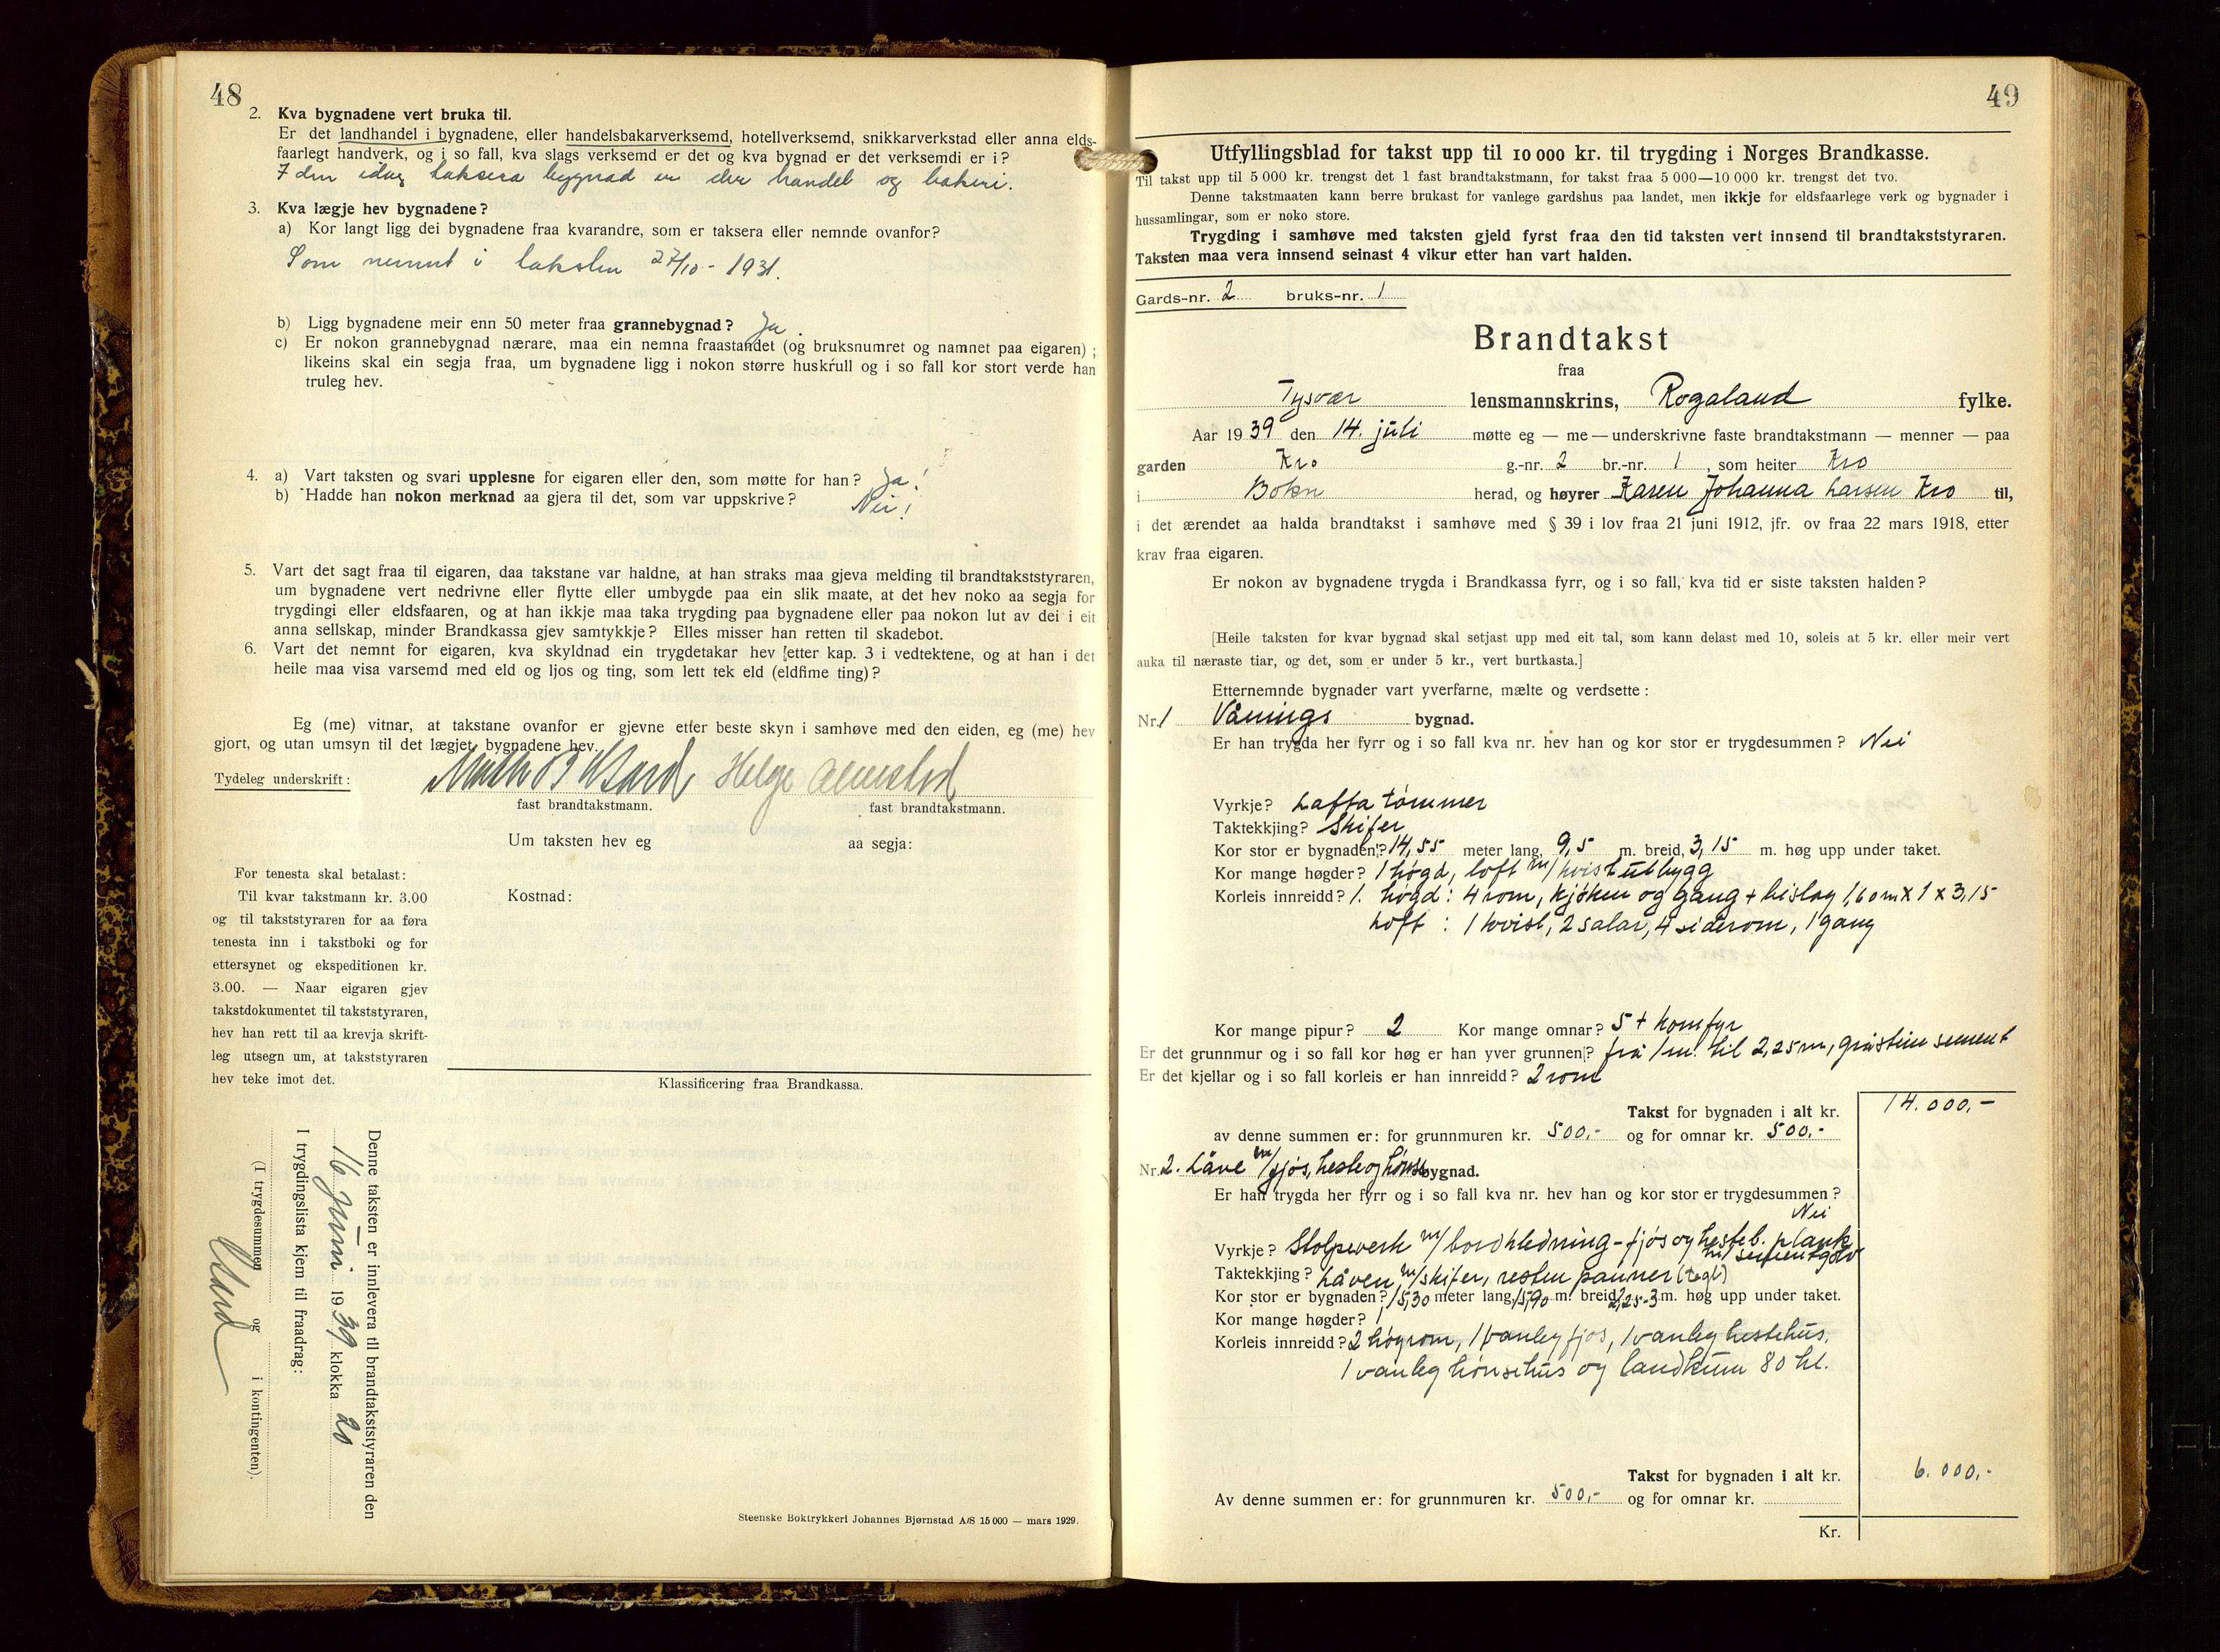 48
2. Kva bygnadene vert bruka til.
Er det landhandel i bygnadene, eller handelsbakarverksemd, hotellverksemd, snikkarverkstad eller anna elds-
faarlegt handverk, og i so fall, kva slags verksemd er det og kva bygnad er det verksemdi er i?
I den idag taksera bygnad er der handel og bakeri.
3. Kva lægje hev bygnadene?
a) Kor langt ligg dei bygnadene fraa kvarandre, som er taksera eller nemnde ovanfor?
Som nemnt i taksten 27/10 - 1931.
b) Ligg bygnadene meir enn 50 meter fraa grannebygnad? Ja.
c) Er nokon grannebygnad nærare, maa ein nemna fraastandet (og bruksnumret og namnet paa eigaren);
likeins skal ein segja fraa, um bygnadene ligg i nokon større huskrull og i so fall kor stort verde han
truleg hev.
4. a) Vart taksten og svari upplesne for eigaren eller den, som møtte for han? Ja!
b) Hadde han nokon merknad aa gjera til det, som var uppskrive? Nei!
5. Vart det sagt fraa til eigaren, daa takstane var haldne, at han straks maa gjeva melding til brandtakststyraren,
um bygnadene vert nedrivne eller flytte eller umbygde paa ein slik maate, at det hev noko aa segja for
trygdingi eller eldsfaaren, og at han ikkje maa taka trygding paa bygnadene eller paa nokon lut av dei i eit
anna sellskap, minder Brandkassa gjev samtykkje? Elles misser han retten til skadebot.
6. Vart det nemnt for eigaren, kva skyldnad ein trygdetakar hev etter kap. 3 i vedtektene, og at han i det
heile maa visa varsemd med eld og ljos og ting, som lett tek eld (eldfime ting)?
Eg (me) vitnar, at takstane ovanfor er gjevne etter beste skyn i samhøve med den eiden, eg (me) hev
gjort, og utan umsyn til det lægjet, bygnadene hev.
Tydeleg underskrift: Helge
fast brandtakstmann. fast brandtakstmann.
Um taksten hev eg aa segja:
For tenesta skal betalast:
Til kvar takstmann kr. 3.00
og til takststyraren for aa føra
tenesta inn i takstboki og for
ettersynet og ekspeditionen kr.
3.00. — Naar eigaren gjev
takstdokumentet til takststyraren,
hev han rett til aa krevja skrift-
leg utsegn um, at takststyraren
hev teke imot det.
Kostnad:
Klassificering fraa Brandkassa.
Denne taksten er innlevera til brandtakststyraren den
16 juni 1939 klokka 20
I trygdingslista kjem til fraadrag:
(I trygdesummen og i kontingenten).
Steenske Boktrykkeri Johannes Bjørnstad A/S 15 000 — mars 1929.
49
Utfyllingsblad for takst upp til 10 000 kr. til trygding i Norges Brandkasse.
Til takst upp til 5 000 kr. trengst det 1 fast brandtakstmann, for takst fraa 5 000—10 000 kr. trengst det tvo.
Denne takstmaaten kann berre brukast for vanlege gardshus paa landet, men ikkje for eldsfaarlege verk og bygnader i
hussamlingar, som er noko store.
Trygding i samhøve med taksten gjeld fyrst fraa den tid taksten vert innsend til brandtakststyraren.
Taksten maa vera innsend seinast 4 vikur etter han vart halden.
Gards-nr. 2 bruks-nr. 1
Brandtakst
fraa
Tysvær lensmannskrins, Rogaland fylke.
Aar 1939 den 14. juli møtte eg — me — underskrivne faste brandtakstmann — menner — paa
garden Kro g.-nr. 2 br.-nr. 1, som heiter Kro
i Bokn herad, og høyrer Karen Johanna Larsen Kro til,
i det ærendet aa halda brandtakst i samhøve med § 39 i lov fraa 21 juni 1912, jfr. ov fraa 22 mars 1918, etter
krav fraa eigaren.
Er nokon av bygnadene trygda i Brandkassa fyrr, og i so fall, kva tid er siste taksten halden?
[Heile taksten for kvar bygnad skal setjast upp med eit tal, som kann delast med 10, soleis at 5 kr. eller meir vert
auka til næraste tiar, og det, som er under 5 kr., vert burtkasta.]
Etternemnde bygnader vart yverfarne, mælte og verdsette:
Nr. 1 Vånings bygnad.
Er han trygda her fyrr og i so fall kva nr. hev han og kor stor er trygdesummen? Nei
Vyrkje? Lafta tømmer
Taktekkjing? Skifer
Kor stor er bygnaden? 14,55 meter lang, 9,5 m. breid, 3,15 m. høg upp under taket.
Kor mange høgder? 1 høgd, loft m/kvistutbygg
Korleis innreidd? 1. høgd: 4 rom, kjøken og gang + bislag 1,60 m x 1 x 3,15
Loft: 1 kvist, 2 salar, 4 siderom, 1 gang
Kor mange pipur? 2 Kor mange omnar? 5 + komfyr
Er det grunnmur og i so fall kor høg er han yver grunnen? frå 1 m. til 2,25 m, gråstein sement
Er det kjellar og i so fall korleis er han innreidd? 2 rom
Takst for bygnaden i alt kr. 14.000,-
av denne summen er: for grunnmuren kr. 500,- og for omnar kr. 500,-
Nr. 2. Låve m/fjøs, hest og hønse bygnad.
Er han trygda her fyrr og i so fall kva nr. hev han og kor stor er trygdesummen?
Nei
Vyrkje? Stolpeverk m/bordkledning - fjøs og hesteb. plank
m/sementgolv
Taktekkjing? Låven m/skifer, resten panner (tegl)
Kor stor er bygnaden? 15,30 meter lang, 15,90 m. breid, 2,25-3 m. høg upp under taket.
Kor mange høgder? 1
Korleis innreidd? 2 høyrom, 1 vanleg fjos, 1 vanleg hestehus,
1 vanleg hønsehus og landkum 80 hl.
Takst for bygnaden i alt kr. 6.000,-
Av denne summen er: for grunnmuren kr. 500,- og for omnar kr.
Kr.